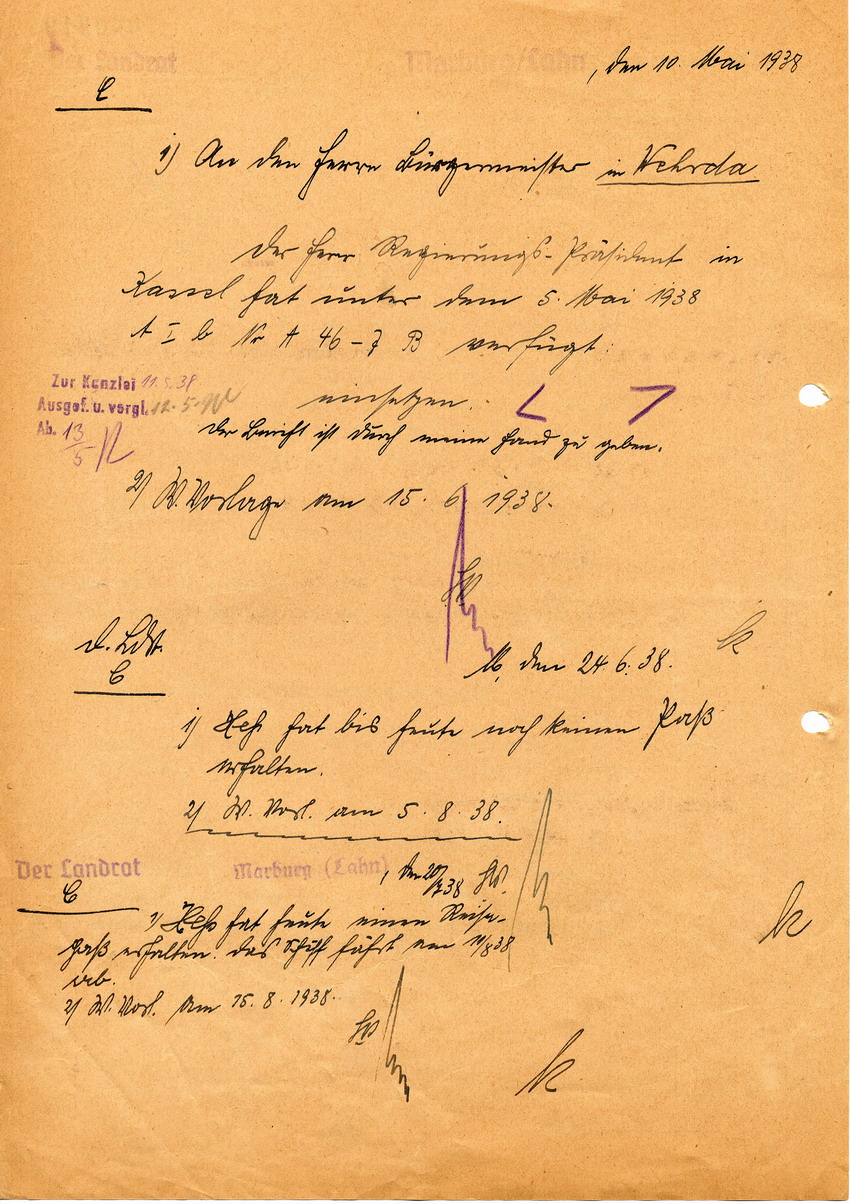 Der Landrat Marburg/Lahn, den 10. Mai 1938
C
1) An den Herrn Bürgermeister in Wehrda
Der Herr Regierungs-Präsident in
Kassel hat unter dem 5. Mai 1938
A I b Nr A 46 – 7 B verfügt:
Zur Kanzlei 11.5.38
Ausgef. u. vergl. 12.5.
Ab. 13/5
einsetzen. < >
Der Bericht ist durch meine Hand zu geben.
2) W. Vorlage am 15. 6. 1938.
D. Ldrt.
C
M, den 24.6.38.
1) Heß hat bis heute noch keinen Paß
erhalten.
2) W. Vorl. am 5. 8. 38.
Der Landrat Marburg (Lahn), den 20/7 38
C
1) Heß hat heute einen Reise-
paß erhalten. Das Schiff fährt am 11/8 38
ab.
2) W. Vorl. am 15. 8. 1938.